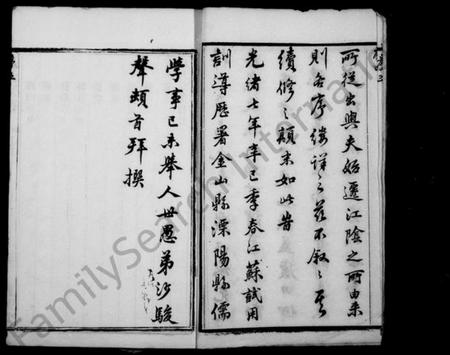 所從出與夫始遷江陰之所由來
則各序縷詳之茲不敘敘其
續修之顛末如此時
光緒七年辛巳季春江蘇試用
訓導歷署金山縣溧陽縣儒
學事己未舉人世愚弟沙駿
聲頓首拜撰
FamilySearch International